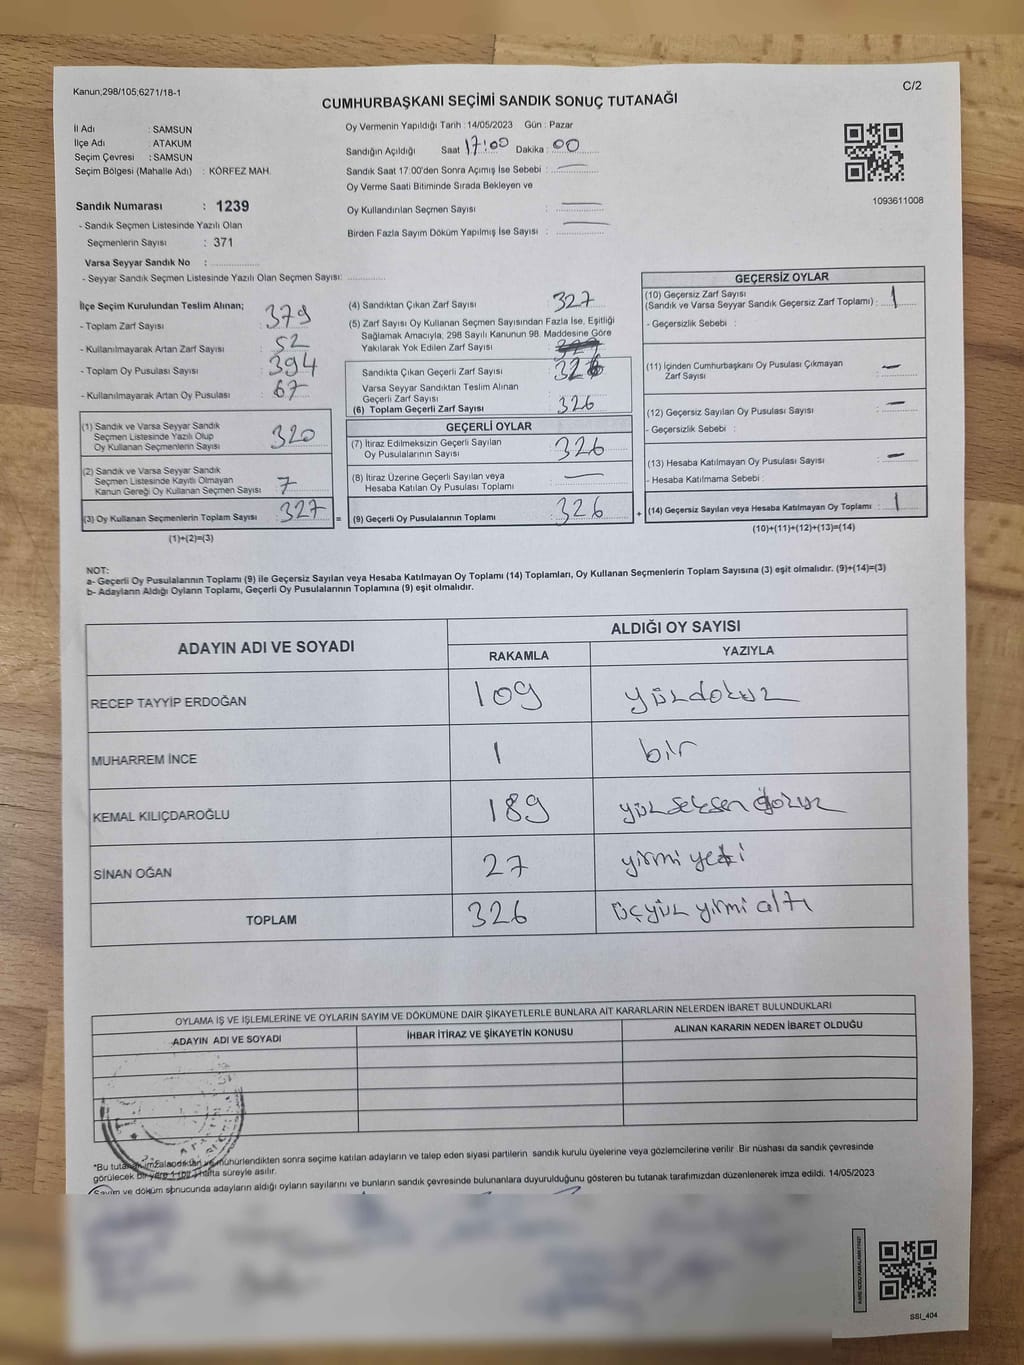 Kanun;298/105;6271/18-1
C/2
CUMHURBAŞKANI SEÇİMİ SANDIK SONUÇ TUTANAĞI
İl Adı : SAMSUN
İlçe Adı : ATAKUM
Seçim Çevresi : SAMSUN
Seçim Bölgesi (Mahalle Adı) : KÖRFEZ MAH.
Sandık Numarası : 1239
- Sandık Seçmen Listesinde Yazılı Olan
Seçmenlerin Sayısı : 371
Varsa Seyyar Sandık No :
- Seyyar Sandık Seçmen Listesinde Yazılı Olan Seçmen Sayısı:
Oy Vermenin Yapıldığı Tarih : 14/05/2023 Gün : Pazar
Sandığın Açıldığı Saat 17:00 Dakika : 00
Sandık Saat 17.00'den Sonra Açımış İse Sebebi : —
Oy Verme Saati Bitiminde Sırada Bekleyen ve
Oy Kullandırılan Seçmen Sayısı : —
Birden Fazla Sayım Döküm Yapılmış İse Sayısı : —
1093611008
İlçe Seçim Kurulundan Teslim Alınan;
- Toplam Zarf Sayısı : 379
- Kullanılmayarak Artan Zarf Sayısı : 52
- Toplam Oy Pusulası Sayısı : 394
- Kullanılmayarak Artan Oy Pusulası : 67
(1) Sandık ve Varsa Seyyar Sandık
Seçmen Listesinde Yazılı Olup
Oy Kullanan Seçmenlerin Sayısı : 320
(2) Sandık ve Varsa Seyyar Sandık
Seçmen Listesinde Kayıtlı Olmayan
Kanun Gereği Oy Kullanan Seçmen Sayısı : 7
(3) Oy Kullanan Seçmenlerin Toplam Sayısı : 327
(1)+(2)=(3)
(4) Sandıktan Çıkan Zarf Sayısı : 327
(5) Zarf Sayısı Oy Kullanan Seçmen Sayısından Fazla İse, Eşitliği
Sağlamak Amacıyla; 298 Sayılı Kanunun 98. Maddesine Göre
Yakılarak Yok Edilen Zarf Sayısı :
Sandıkta Çıkan Geçerli Zarf Sayısı : 326
Varsa Seyyar Sandıktan Teslim Alınan
Geçerli Zarf Sayısı :
(6) Toplam Geçerli Zarf Sayısı : 326
GEÇERLİ OYLAR
(7) İtiraz Edilmeksizin Geçerli Sayılan
Oy Pusulalarının Sayısı : 326
(8) İtiraz Üzerine Geçerli Sayılan veya
Hesaba Katılan Oy Pusulası Toplamı : —
= (9) Geçerli Oy Pusulalarının Toplamı : 326
GEÇERSİZ OYLAR
(10) Geçersiz Zarf Sayısı
(Sandık ve Varsa Seyyar Sandık Geçersiz Zarf Toplamı) : 1
- Geçersizlik Sebebi :
(11) İçinden Cumhurbaşkanı Oy Pusulası Çıkmayan
Zarf Sayısı : —
(12) Geçersiz Sayılan Oy Pusulası Sayısı : —
- Geçersizlik Sebebi :
(13) Hesaba Katılmayan Oy Pusulası Sayısı : —
- Hesaba Katılmama Sebebi :
+ (14) Geçersiz Sayılan veya Hesaba Katılmayan Oy Toplamı : 1
(10)+(11)+(12)+(13)=(14)
NOT:
a- Geçerli Oy Pusulalarının Toplamı (9) ile Geçersiz Sayılan veya Hesaba Katılmayan Oy Toplamı (14) Toplamları, Oy Kullanan Seçmenlerin Toplam Sayısına (3) eşit olmalıdır. (9)+(14)=(3)
b- Adayların Aldığı Oyların Toplamı, Geçerli Oy Pusulalarının Toplamına (9) eşit olmalıdır.
ADAYIN ADI VE SOYADI
ALDIĞI OY SAYISI
RAKAMLA YAZIYLA
RECEP TAYYİP ERDOĞAN 109 yüzdokuz
MUHARREM İNCE 1 bir
KEMAL KILIÇDAROĞLU 189 yüzseksendokuz
SİNAN OĞAN 27 yirmiyedi
TOPLAM 326 üçyüzyirmialtı
OYLAMA İŞ VE İŞLEMLERİNE VE OYLARIN SAYIM VE DÖKÜMÜNE DAİR ŞİKAYETLERLE BUNLARA AİT KARARLARIN NELERDEN İBARET BULUNDUKLARI
ADAYIN ADI VE SOYADI İHBAR İTİRAZ VE ŞİKAYETİN KONUSU ALINAN KARARIN NEDEN İBARET OLDUĞU
*Bu tutanak imzalandıktan ve mühürlendikten sonra seçime katılan adayların ve talep eden siyasi partilerin sandık kurulu üyelerine veya gözlemcilerine verilir. Bir nüshası da sandık çevresinde
görülecek bir yere 1 (bir) hafta süreyle asılır.
Sayım ve döküm sonucunda adayların aldığı oyların sayılarını ve bunların sandık çevresinde bulunanlara duyurulduğunu gösteren bu tutanak tarafımızdan düzenlenerek imza edildi. 14/05/2023
SSI_404